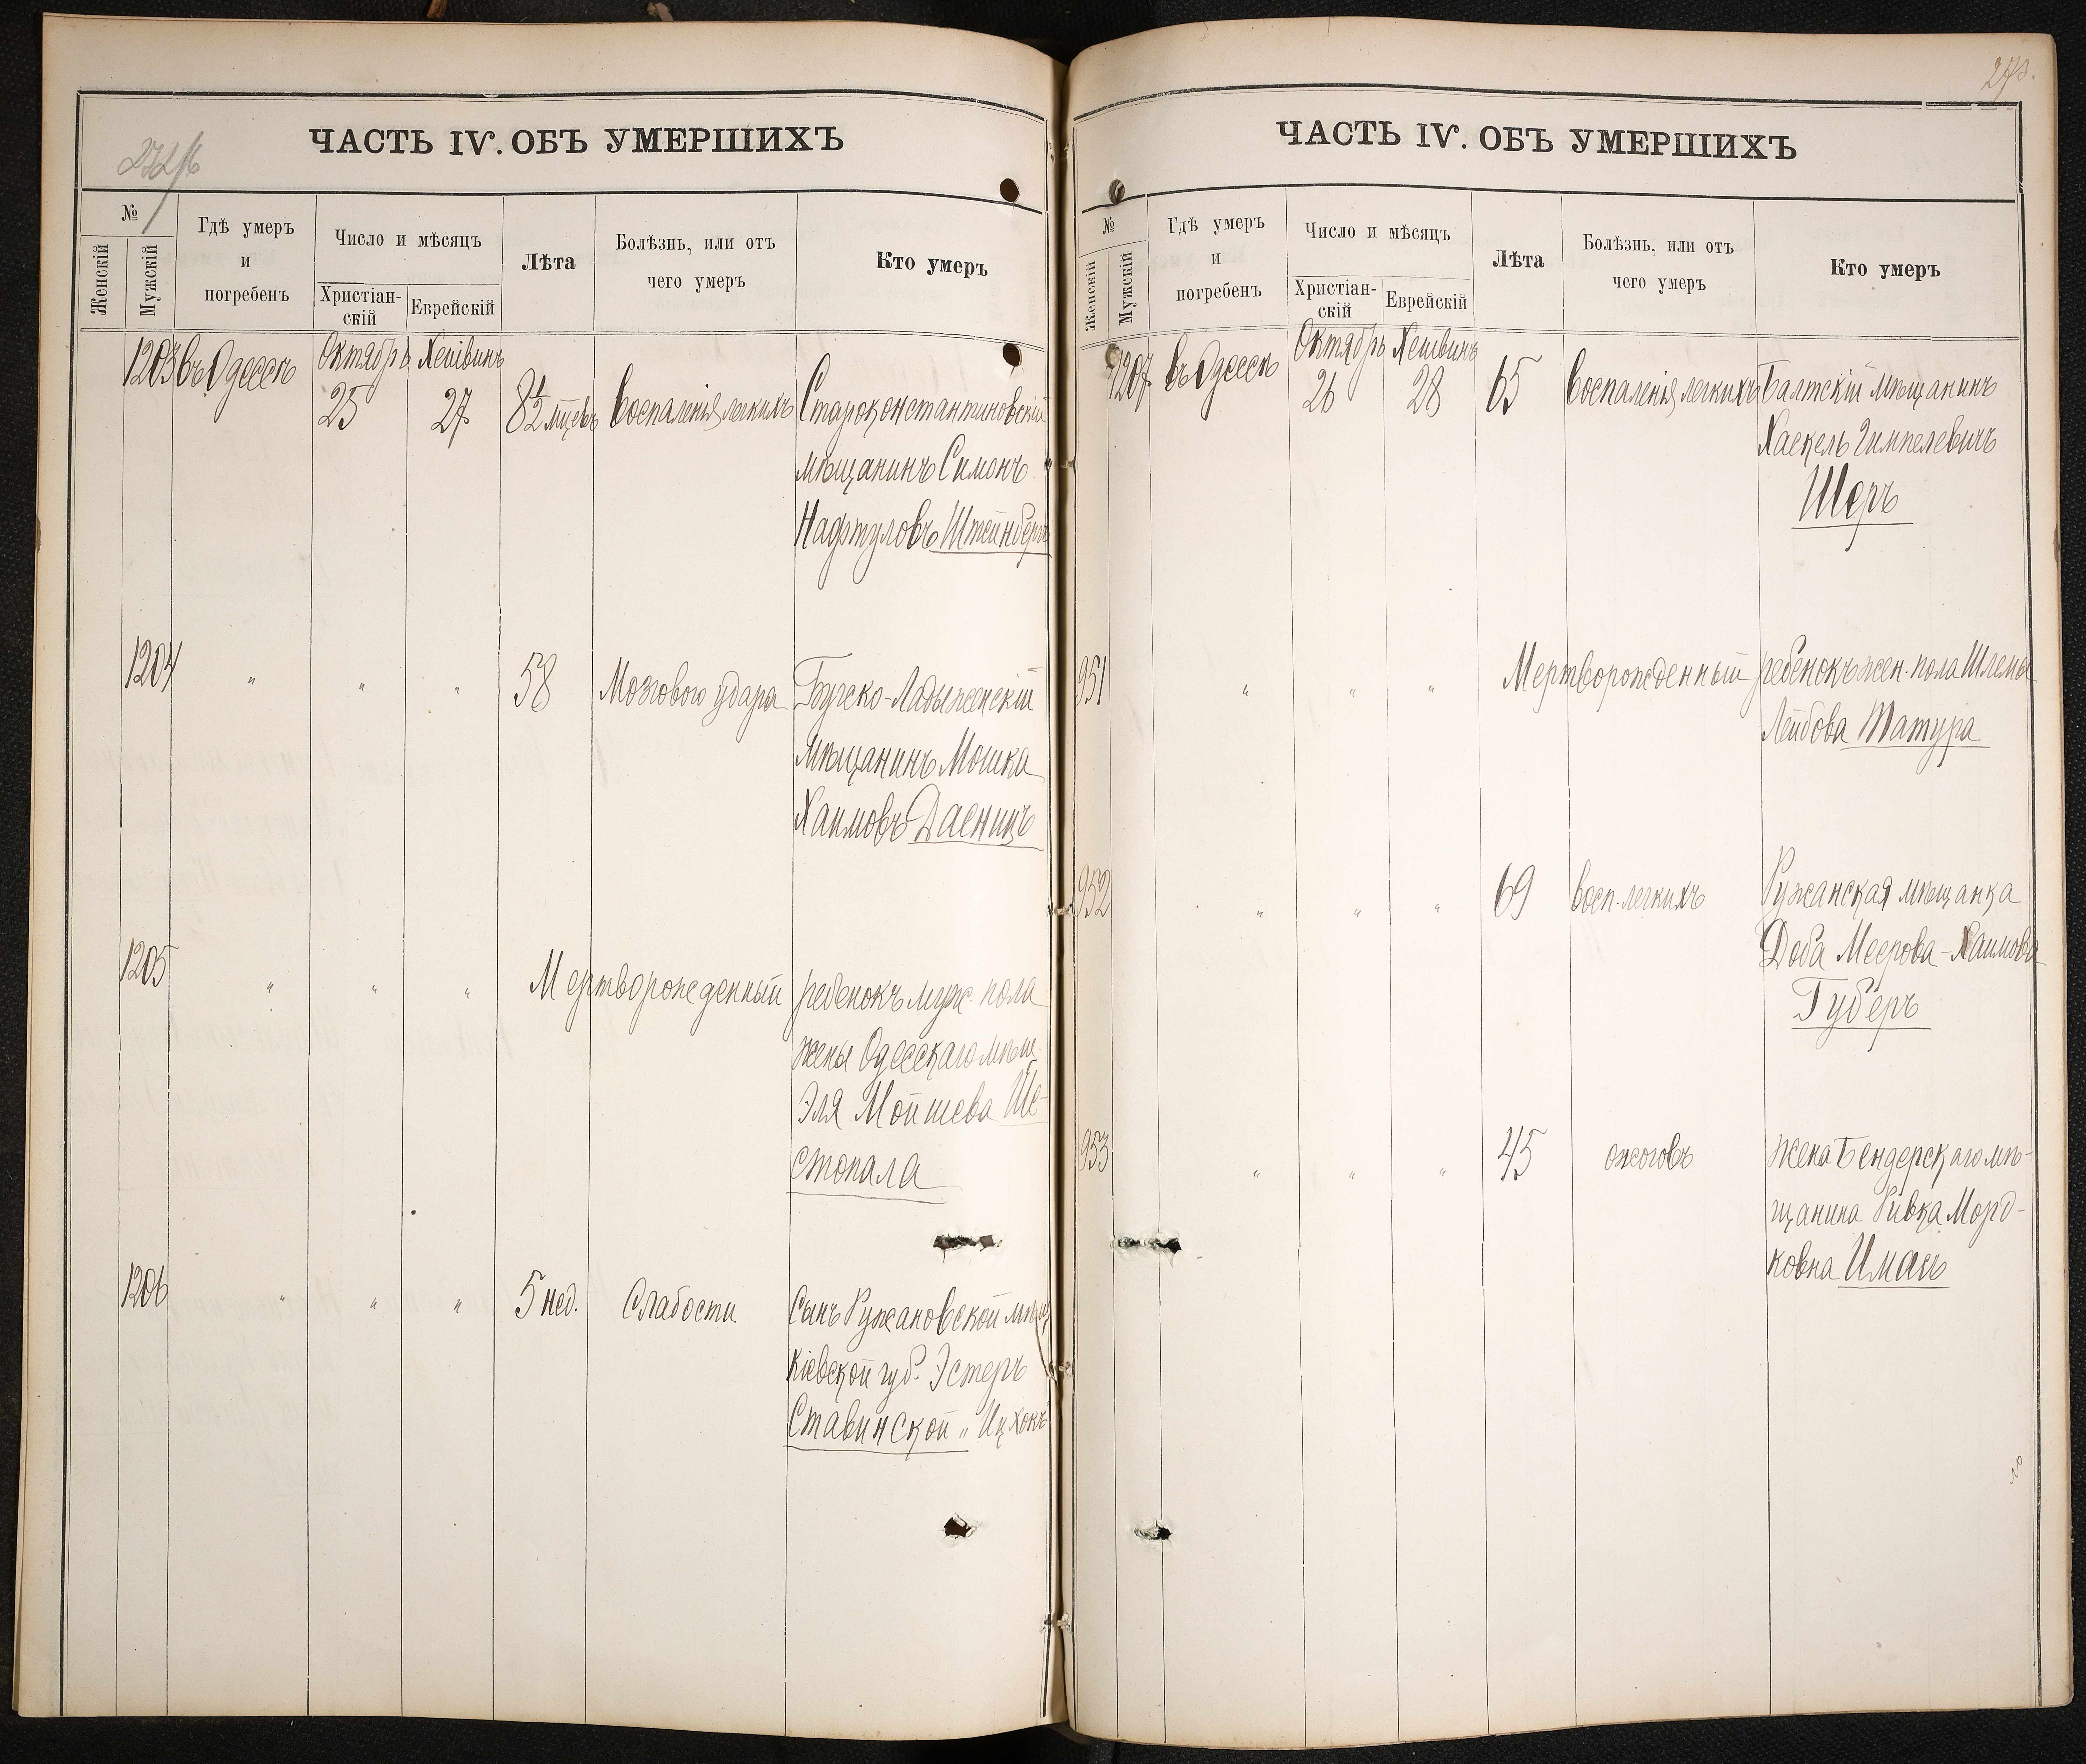 272/б
ЧАСТЬ IV. ОБЪ УМЕРШИХЪ
№
Женскій
Мужскій
Гдѣ умеръ
и
погребенъ
Число и мѣсяцъ
Христіан-
скій
Еврейскій
Лѣта
Болѣзнь, или отъ
чего умеръ
Кто умеръ
Октябрь Хешвинъ
1203 въ Одессѣ 25 27 8½ мцевъ воспаленія легкихъ Староконстантиновскій
мѣщанинъ Симонъ
Нафтуловъ Штейнбергъ
1204 " " " 58 Мозгового удара Бугско-Ладыженскій
мѣщанинъ Мошка
Хаимовъ Дасницъ
1205 " " " Мертворожденный ребенокъ муж. пола
жены Одесскаго мѣщ.
Эля Мойшева Ше-
стопала
1206 " " " 5 нед. Слабости Сынъ Ружановской мѣщ
Кіевской губ. Эстеръ
Ставинской „ Ицхокъ
273.
ЧАСТЬ IV. ОБЪ УМЕРШИХЪ
№
Женскій
Мужскій
Гдѣ умеръ
и
погребенъ
Число и мѣсяцъ
Христіан-
скій
Еврейскій
Лѣта
Болѣзнь, или отъ
чего умеръ
Кто умеръ
Октябрь Хешвинъ
1207 въ Одессѣ 26 28 65 воспаленія легкихъ Балтскій мѣщанинъ
Хаскель Гимпелевичъ
Шеръ
951 " " " Мертворожденный ребенокъ жен. пола Шлемы
Лейбова Татура
952 " " " 69 восп. легкихъ Ружанская мѣщанка
Доба Меерова-Хаимова
Губеръ
953 " " " 45 ожоговъ жена Бендерскаго мѣ-
щанина Ривка Морд-
ковна Имасъ